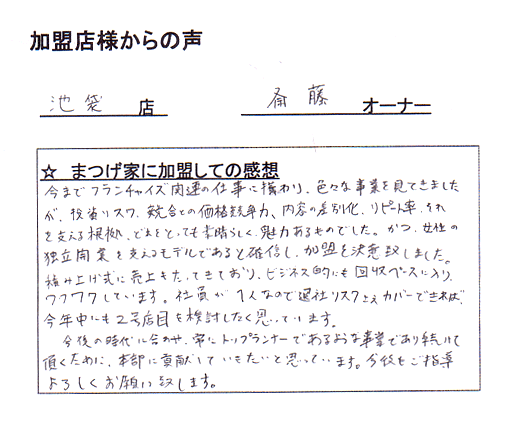 加盟店様からの声
池袋 店 斎藤 オーナー
☆ まつげ家に加盟しての感想
今までフランチャイズ関連の仕事に携わり、色々な事業を見てきました
が、投資リスク、競合との価格競争力、内容の差別化、リピート率、それ
を支える根拠、どれをとっても素晴らしく、魅力あるものでした。かつ、女性の
独立開業を支えるモデルであると確信し、加盟を決意致しました。
積み上げ式に売上もたってきており、ビジネス的にも回収ペースに入り、
ワクワクしています。社員が1人なので退社リスクさえカバーできれば、
今年中にも2号店目を検討したく思っています。
今後の時代に合わせ、常にトップランナーであるような事業であり続けて
頂くために、本部に貢献していきたいと思っています。今後もご指導
よろしくお願い致します。